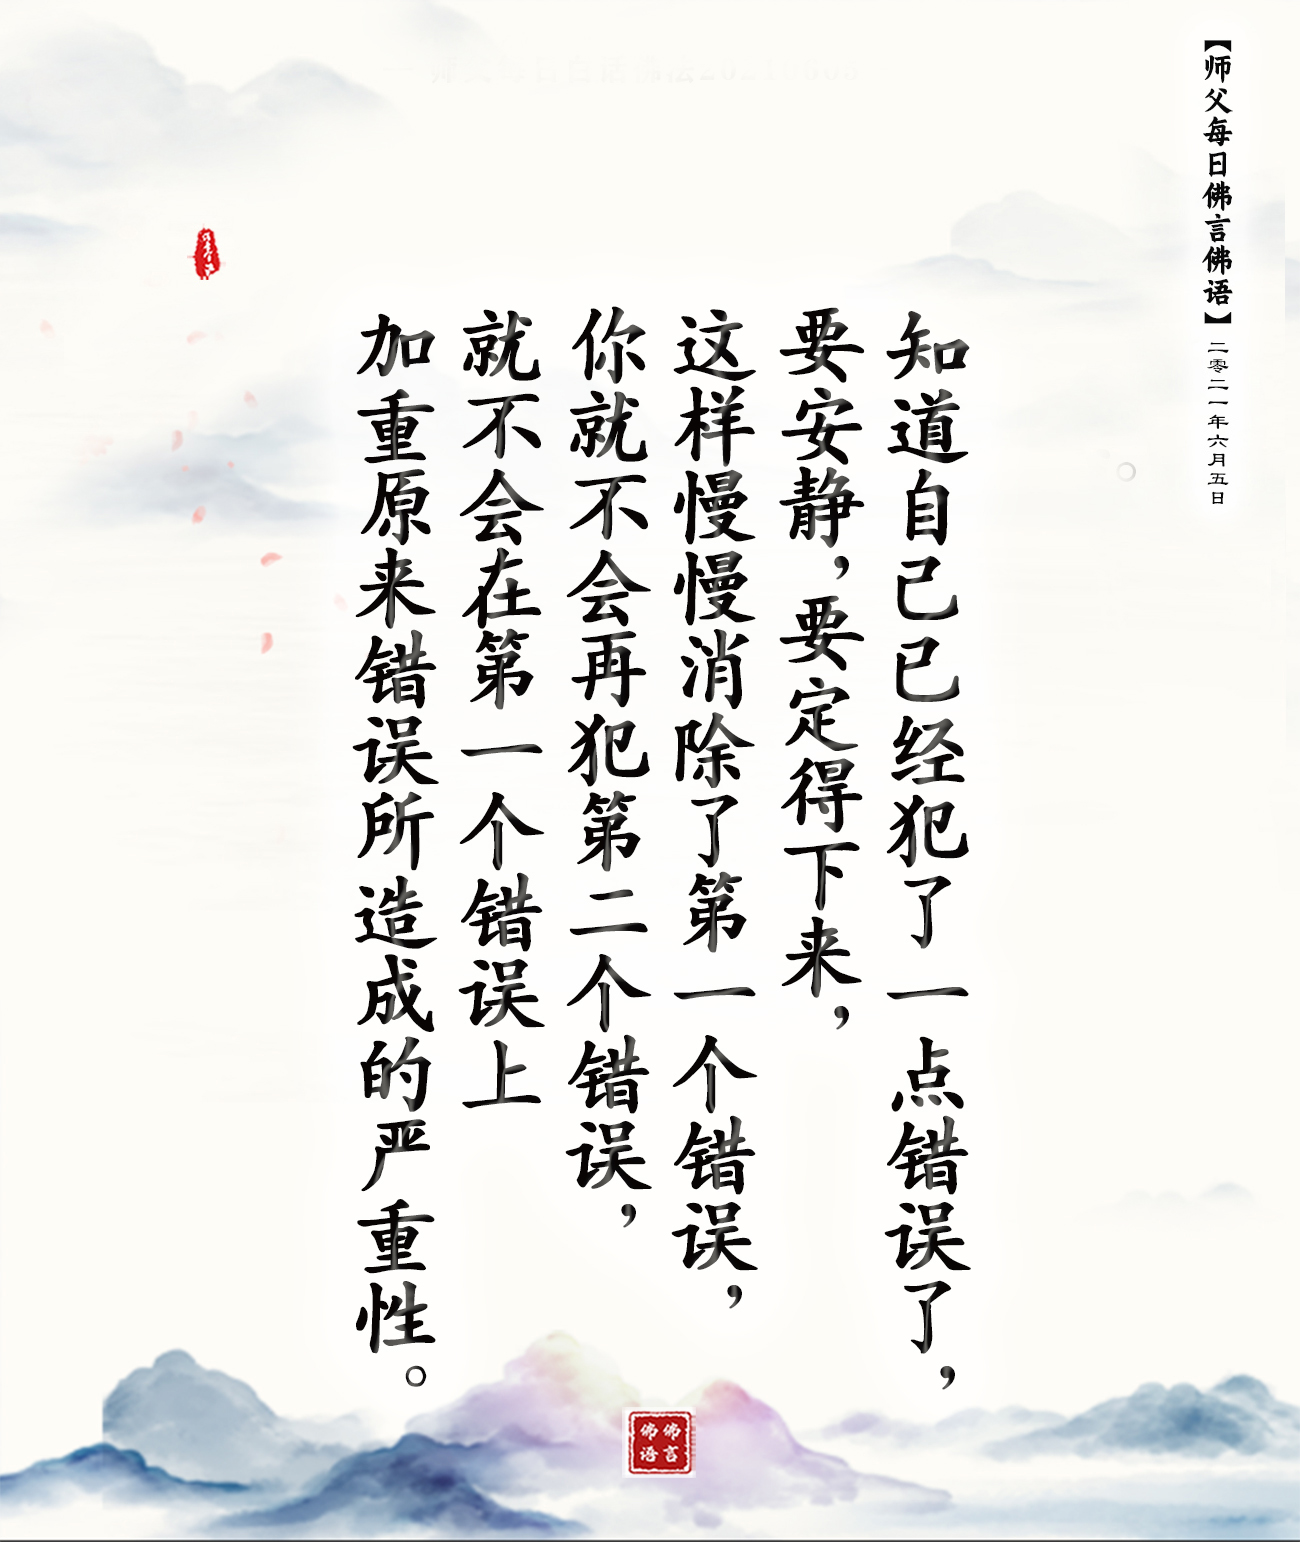 【师父每日佛言佛语】二零二一年六月五日
知道自己已经犯了一点错误了，
要安静，要定得下来，
这样慢慢消除了第一个错误，
你就不会再犯第二个错误，
就不会在第一个错误上
加重原来错误所造成的严重性。
佛言
佛语